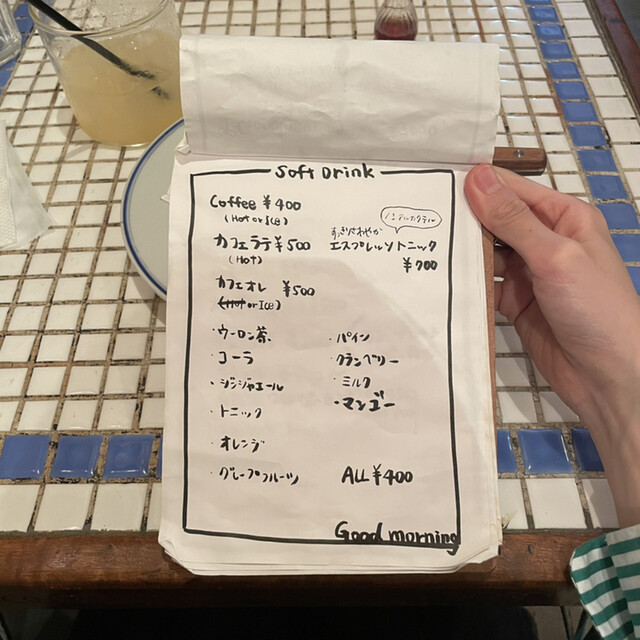 Soft Drink
Coffee ¥400
(Hot or ICE)
カフェラテ ¥500
(Hot)
カフェオレ ¥500
(Hot or ICE)
ノンアルカクテル
すっきりさわやか
エスプレッソトニック
¥700
・ウーロン茶
・コーラ
・ジンジャエール
・トニック
・オレンジ
・グレープフルーツ
・パイン
・クランベリー
・ミルク
・マンゴー
ALL ¥400
Good morning